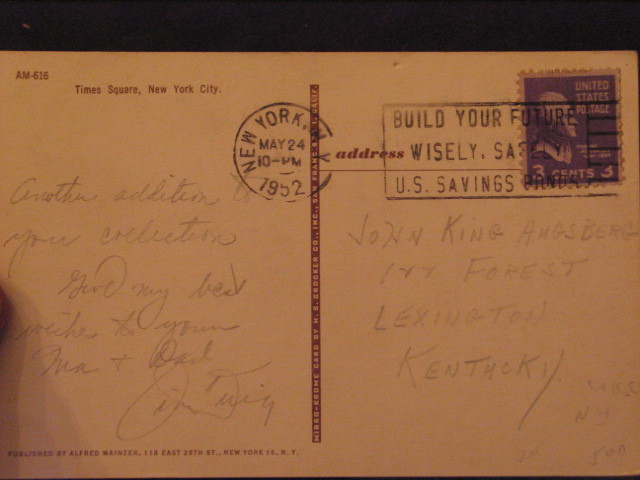 AM-616
Times Square, New York City.
NEW YORK, N.Y.
MAY 24
10-PM
1952
BUILD YOUR FUTURE
WISELY, SAFELY
U.S. SAVINGS BONDS
UNITED
STATES
POSTAGE
3 CENTS 3
address
Another addition to
your collection
Give my best
wishes to your
Ma + Dad
Jim
JOHN KING AUGSBERG
FOREST
LEXINGTON
KENTUCKY
NY
500
MIRRO-KROME CARD BY H. S. CROCKER CO., INC., SAN FRANCISCO, CALIF.
PUBLISHED BY ALFRED MAINZER, 118 EAST 28TH ST., NEW YORK 16, N. Y.